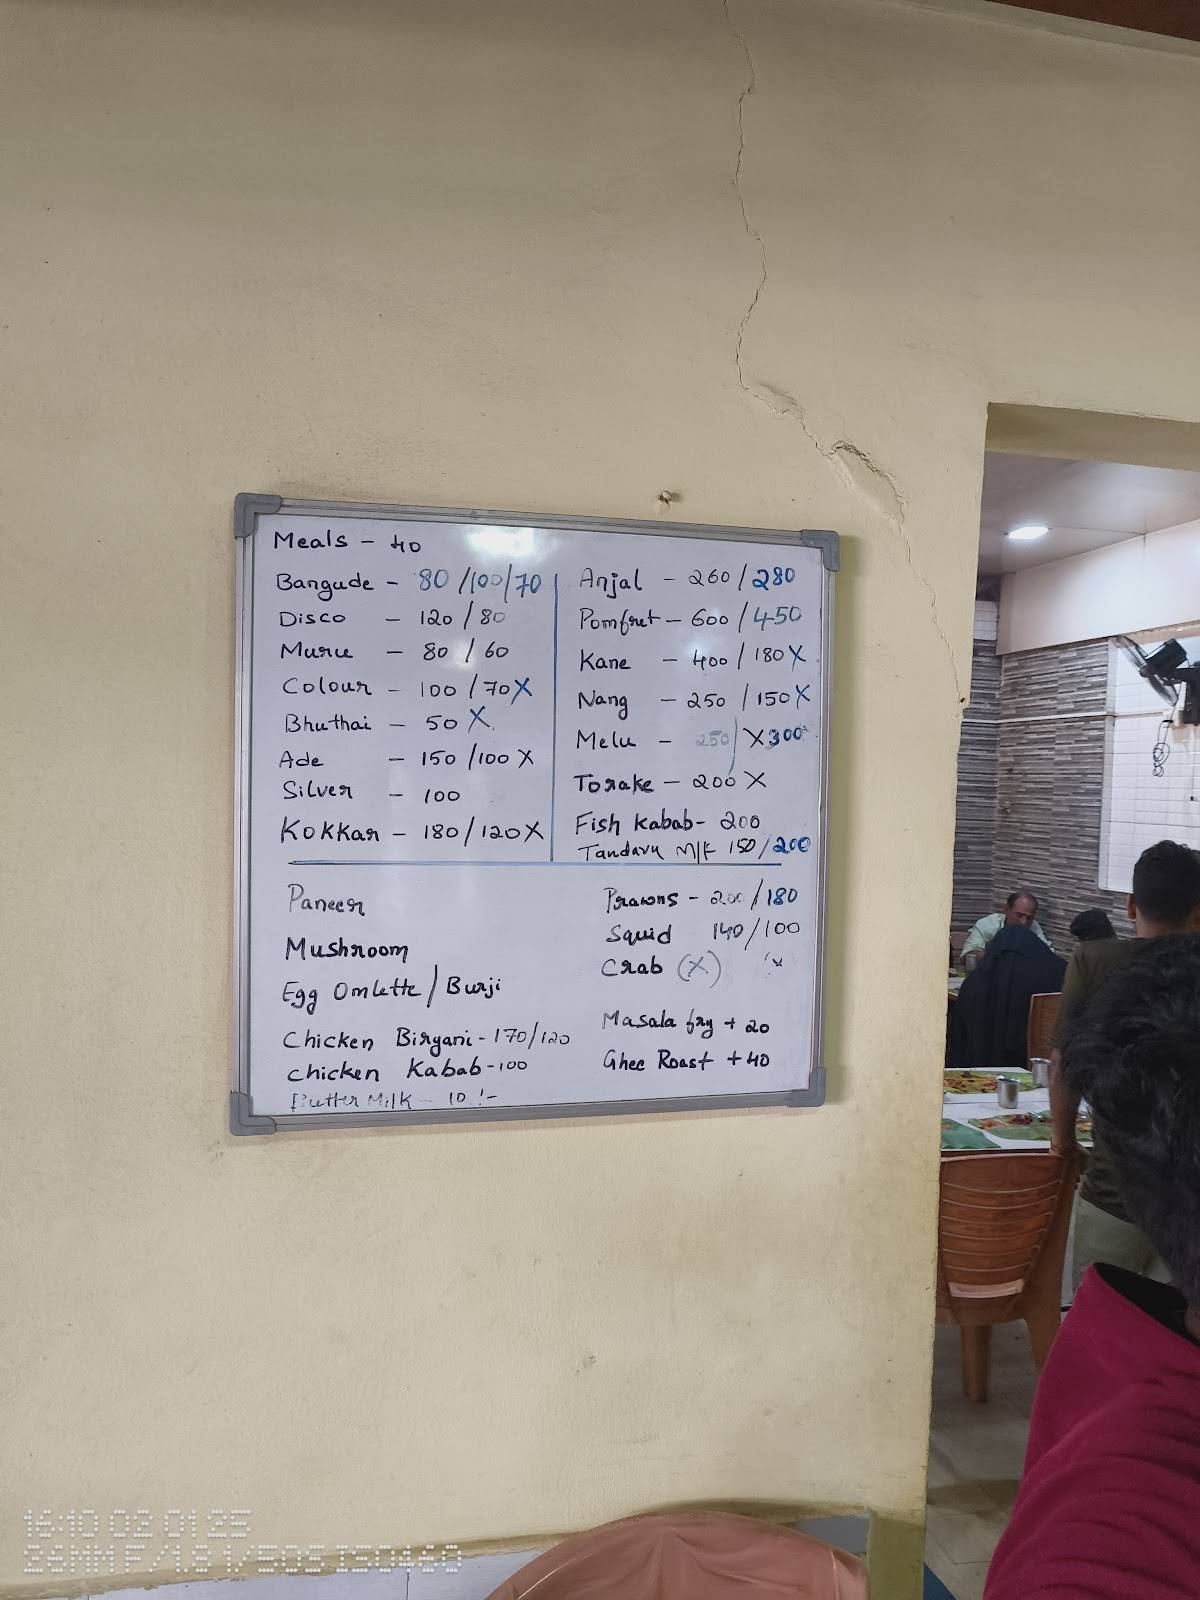 Meals - 40
Bangude - 80/100/70
Disco - 120/80
Muru - 80/60
Colour - 100/70X
Bhuthai - 50 X
Ade - 150/100 X
Silver - 100
Kokkar - 180/120X
Anjal - 260/280
Pomfret - 600/450
Kane - 400/180X
Nang - 250/150X
Melu - 250/X300
Torake - 200X
Fish Kabab - 200
Tandavu M/F 150/200
Paneer
Mushroom
Egg Omlette/Burji
Chicken Biryani - 170/120
Chicken Kabab - 100
Butter Milk - 10/-
Prawns - 200/180
Squid 140/100
Crab (X) X
Masala fry + 20
Ghee Roast + 40
16:10 02.01.25
26MM F/1.9 1/50S ISO460